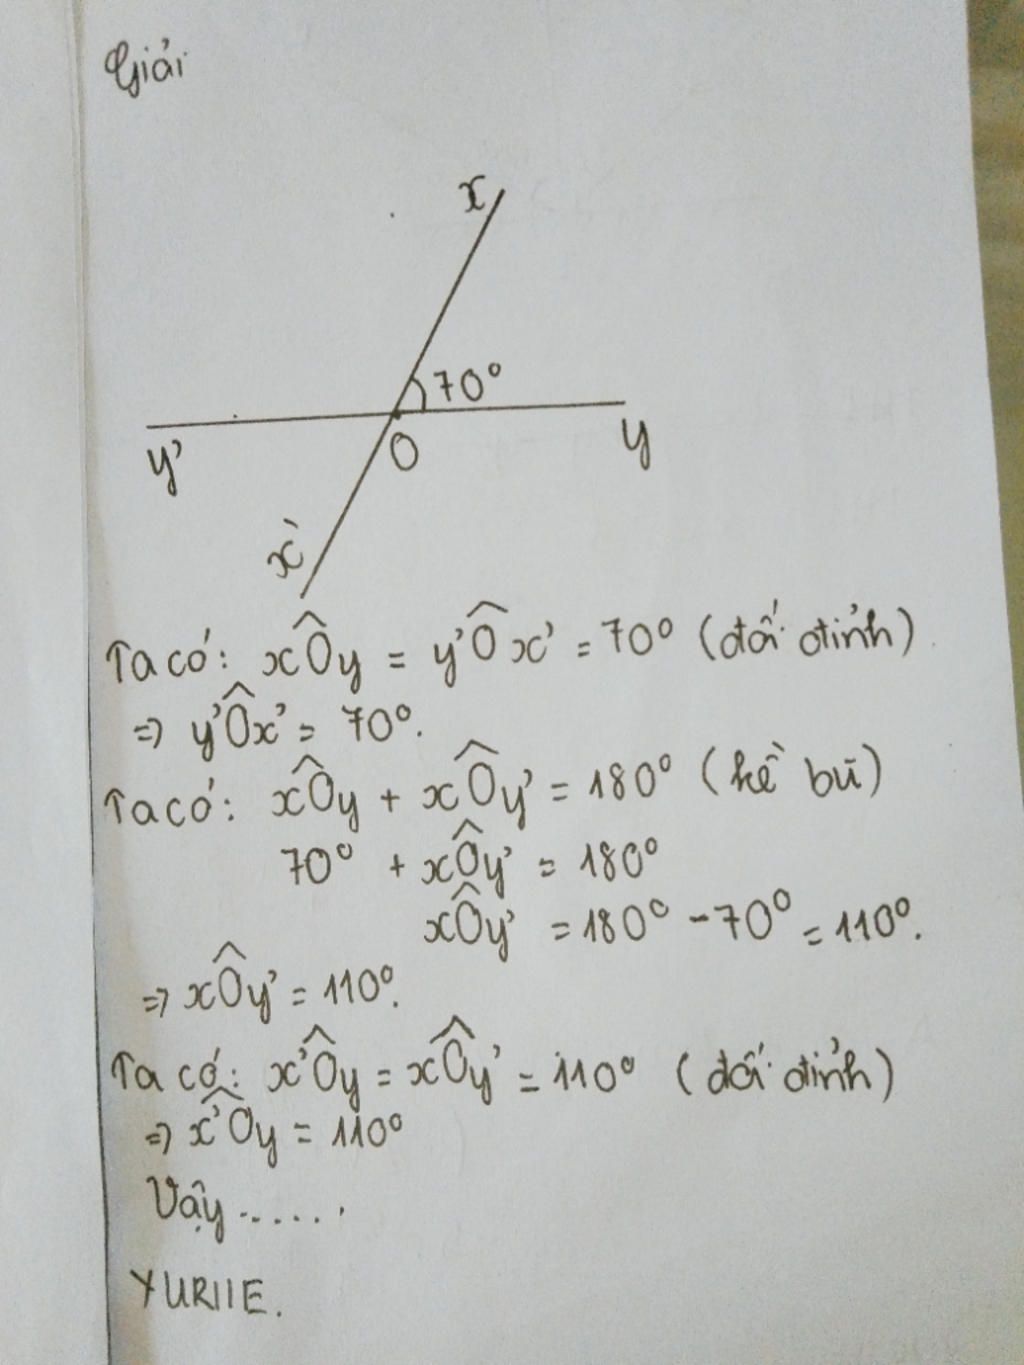 Giải
x
70°
y'
O
y
x'
Ta có: xÔy = y'Ôx' = 70° (đối đỉnh)
=> y'Ôx' = 70°.
Ta có: xÔy + xÔy' = 180° (kề bù)
70° + xÔy' = 180°
xÔy' = 180° - 70° = 110°.
=> xÔy' = 110°.
Ta có: x'Ôy = xÔy' = 110° (đối đỉnh)
=> x'Ôy = 110°
Vậy ......
YURIIE.